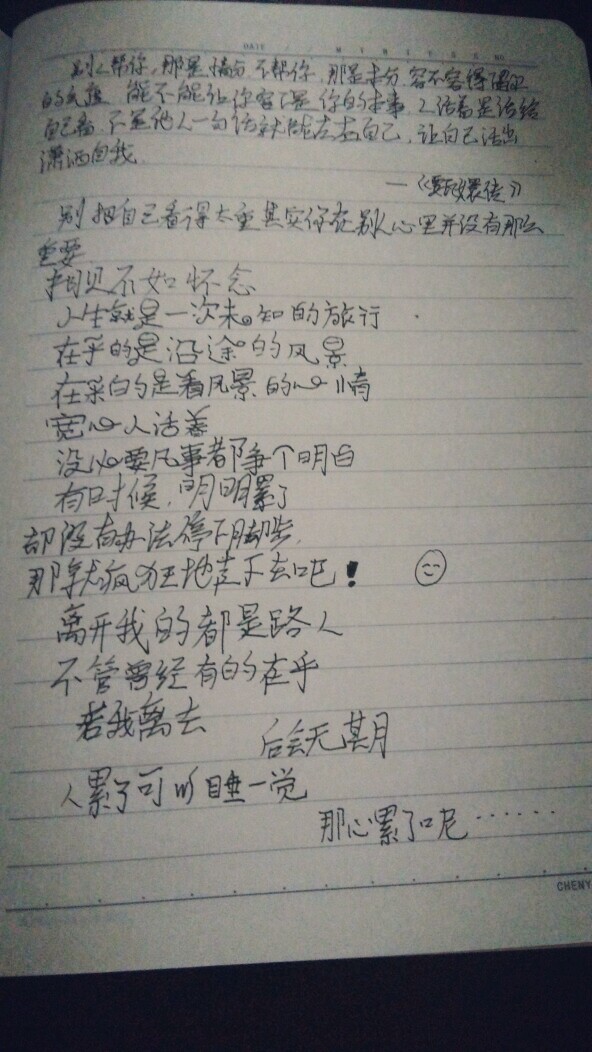 DATE
别人帮你,那是情分,不帮你,那是本分,容不容得下是
的气度,能不能让你容下是你的本事.人活着是活给
自己看,不是他人一句话就能左右自己,让自己活出
潇洒自我.
——《甄嬛传》
别把自己看得太重其实你在别人心里并没有那么
重要.
相见不如怀念
人生就是一次未知的旅行
在乎的是沿途的风景
在乎的是看风景的心情
宽心人活着
没必要凡事都争个明白
有时候,明明累了
却没有办法停下脚步,
那就疯狂地走下去吧!
离开我的都是路人
不管曾经有的在乎
若我离去
后会无其月
人累了可以睡一觉
那心累了呢······
CHENY